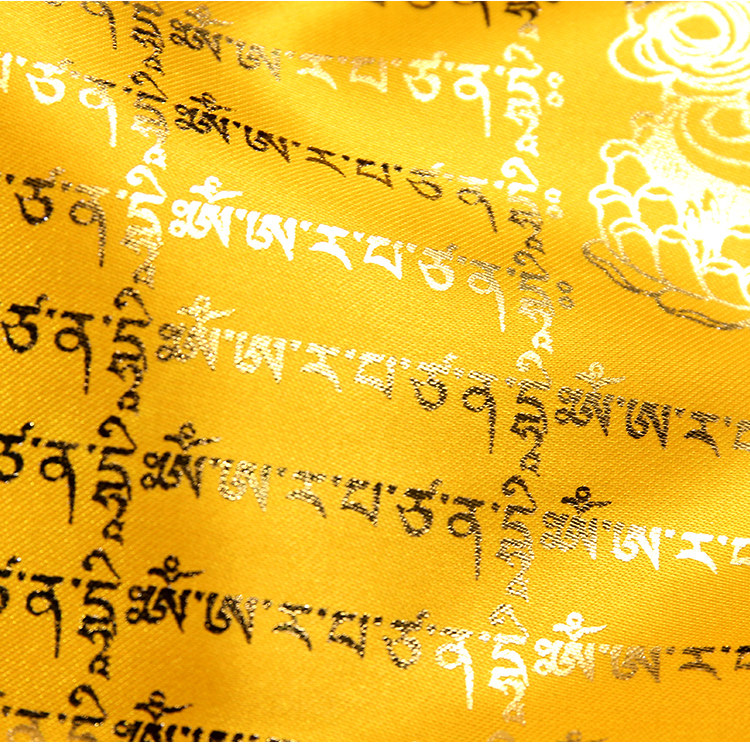 ན་དྷཱིཿཨོཾ་ཨ་ར་པ་ཙ་ན་དྷཱིཿ
ཙ་ན་དྷཱིཿཨོཾ་ཨ་ར་པ་ཙ་ན་དྷཱིཿ
ཙ་ན་དྷཱིཿཨོཾ་ཨ་ར་པ་ཙ་ན་དྷཱིཿ
ཙ་ན་དྷཱིཿཨོཾ་ཨ་ར་པ་ཙ་ན་དྷཱིཿཨོཾ་ཨ་ར་པ
ཙ་ན་དྷཱིཿཨོཾ་ཨ་ར་པ་ཙ་ན་དྷཱིཿཨོཾ་ཨ་ར་པ
ཙ་ན་དྷཱིཿཨོཾ་ཨ་ར་པ་ཙ་ན་དྷཱིཿཨོཾ་ཨ་ར་པ